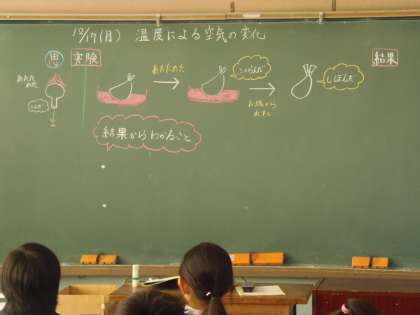 12/17(月) 温度による空気の変化
思
実験
結果
あたためた
あたためた
ふくらんだ
お湯から
出すと
しぼんだ
結果からわかること